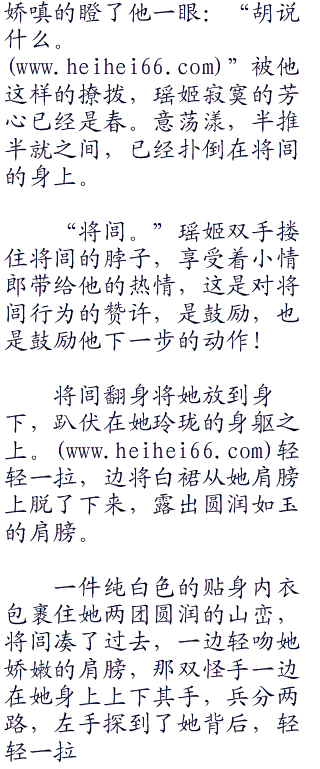 娇嗔的瞪了他一眼：“胡说
什么。
(www.heihei66.com)”被他
这样的撩拨，瑶姬寂寞的芳
心已经是春。意荡漾，半推
半就之间，已经扑倒在将闾
的身上。
“将闾。”瑶姬双手搂
住将闾的脖子，享受着小情
郎带给他的热情，这是对将
闾行为的赞许，是鼓励，也
是鼓励他下一步的动作！
将闾翻身将她放到身
下，趴伏在她玲珑的身躯之
上。(www.heihei66.com)轻
轻一拉，边将白裙从她肩膀
上脱了下来，露出圆润如玉
的肩膀。
一件纯白色的贴身内衣
包裹住她两团圆润的山峦，
将闾凑了过去，一边轻吻她
娇嫩的肩膀，那双怪手一边
在她身上上下其手，兵分两
路，左手探到了她背后，轻
轻一拉